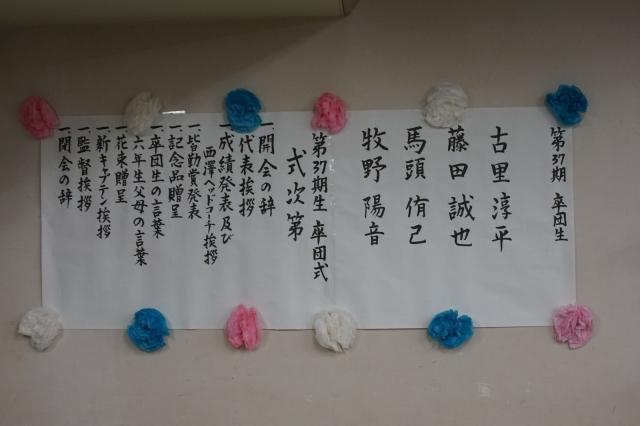 第37期 卒団生
古里 淳平
藤田 誠也
馬頭 侑己
牧野 陽音
第37期生 卒団式
式次第
一.開会の辞
一.代表挨拶
一.成績発表及び
西澤ヘッドコーチ挨拶
一.皆勤賞発表
一.記念品贈呈
一.卒団生の言葉
一.六年生父母の言葉
一.花束贈呈
一.新キャプテン挨拶
一.監督挨拶
一.閉会の辞